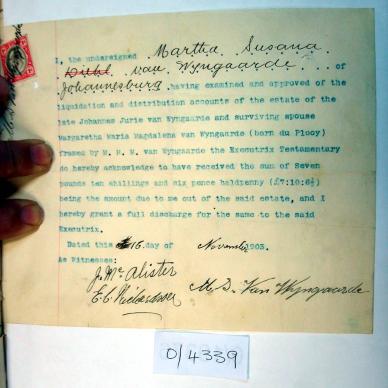 I, the undersigned Martha Susana
Diehl van Wyngaarde of
Johannesburg having examined and approved of the
liquidation and distribution accounts of the estate of the
late Johannes Jurie van Wyngaarde and surviving spouse
Margaretha Maria Magdalena van Wyngaarde (born du Plooy)
framed by M. M. M. van Wyngaarde the Executrix Testamentary
do hereby acknowledge to have received the sum of Seven
pounds ten shillings and six pence halfpenny (£7:10:6½)
being the amount due to me out of the said estate, and I
hereby grant a full discharge for the same to the said
Executrix.
Dated this 16 day of November 1903.
As Witnesses:
J. McAlister
E. C. M. S. Van Wyngaarde
0/4339